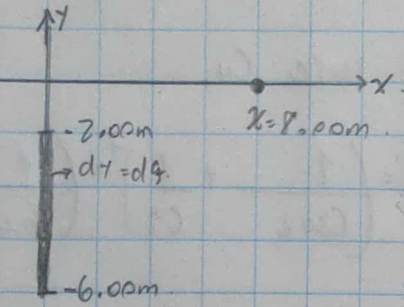 y
x
-2.00m
x=8.00m.
→dy=dq.
-6.00m